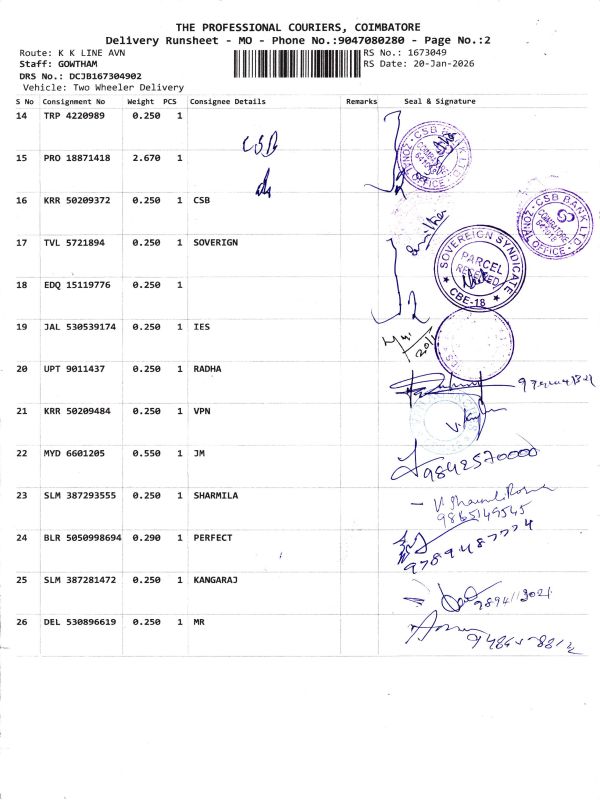 THE PROFESSIONAL COURIERS, COIMBATORE
Delivery Runsheet - MO - Phone No.:9047080280 - Page No.:2
Route: K K LINE AVN
RS No.: 1673049
Staff: GOWTHAM
RS Date: 20-Jan-2026
DRS No.: DCJB167304902
Vehicle: Two Wheeler Delivery
S No Consignment No Weight PCS Consignee Details Remarks Seal & Signature
14 TRP 4220989 0.250 1
CSB
15 PRO 18871418 2.670 1
CSB BANK LTD. ZONAL OFFICE
16 KRR 50209372 0.250 1 CSB
CSB BANK LTD. ZONAL OFFICE COIMBATORE
17 TVL 5721894 0.250 1 SOVERIGN
SOVEREIGN SYNDICATE PARCEL RECEIVED CBE-18
18 EDQ 15119776 0.250 1
19 JAL 530539174 0.250 1 IES
20 UPT 9011437 0.250 1 RADHA
21 KRR 50209484 0.250 1 VPN
22 MYD 6601205 0.550 1 JM
9842570000
23 SLM 387293555 0.250 1 SHARMILA
9865149545
24 BLR 5050998694 0.290 1 PERFECT
9789487774
25 SLM 387281472 0.250 1 KANGARAJ
26 DEL 530896619 0.250 1 MR